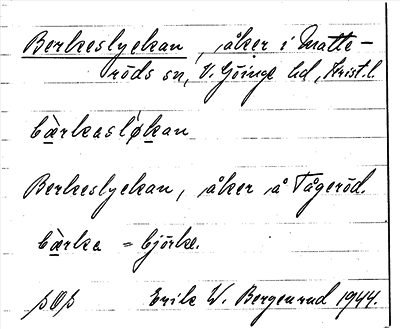 Berkeslyckan, åker i Matte-
röds sn, V. Göinge hd, Krist. l.
bàrkasløkan
Berkeslyckan, åker å Tågeröd.
bàrka = björke.
Erik W. Bergenrud 1944.